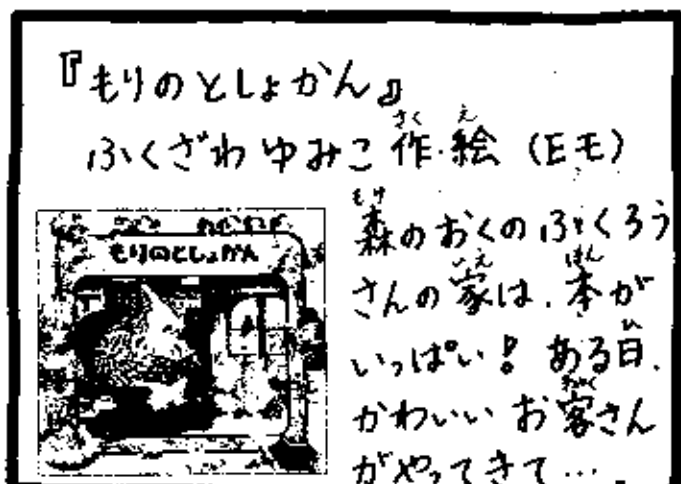 『もりのとしょかん』
ふくざわゆみこ 作・絵 (Eモ)
もりのとしょかん
森のおくのふくろう
さんの家は、本が
いっぱい！ある日、
かわいいお客さん
がやってきて…。